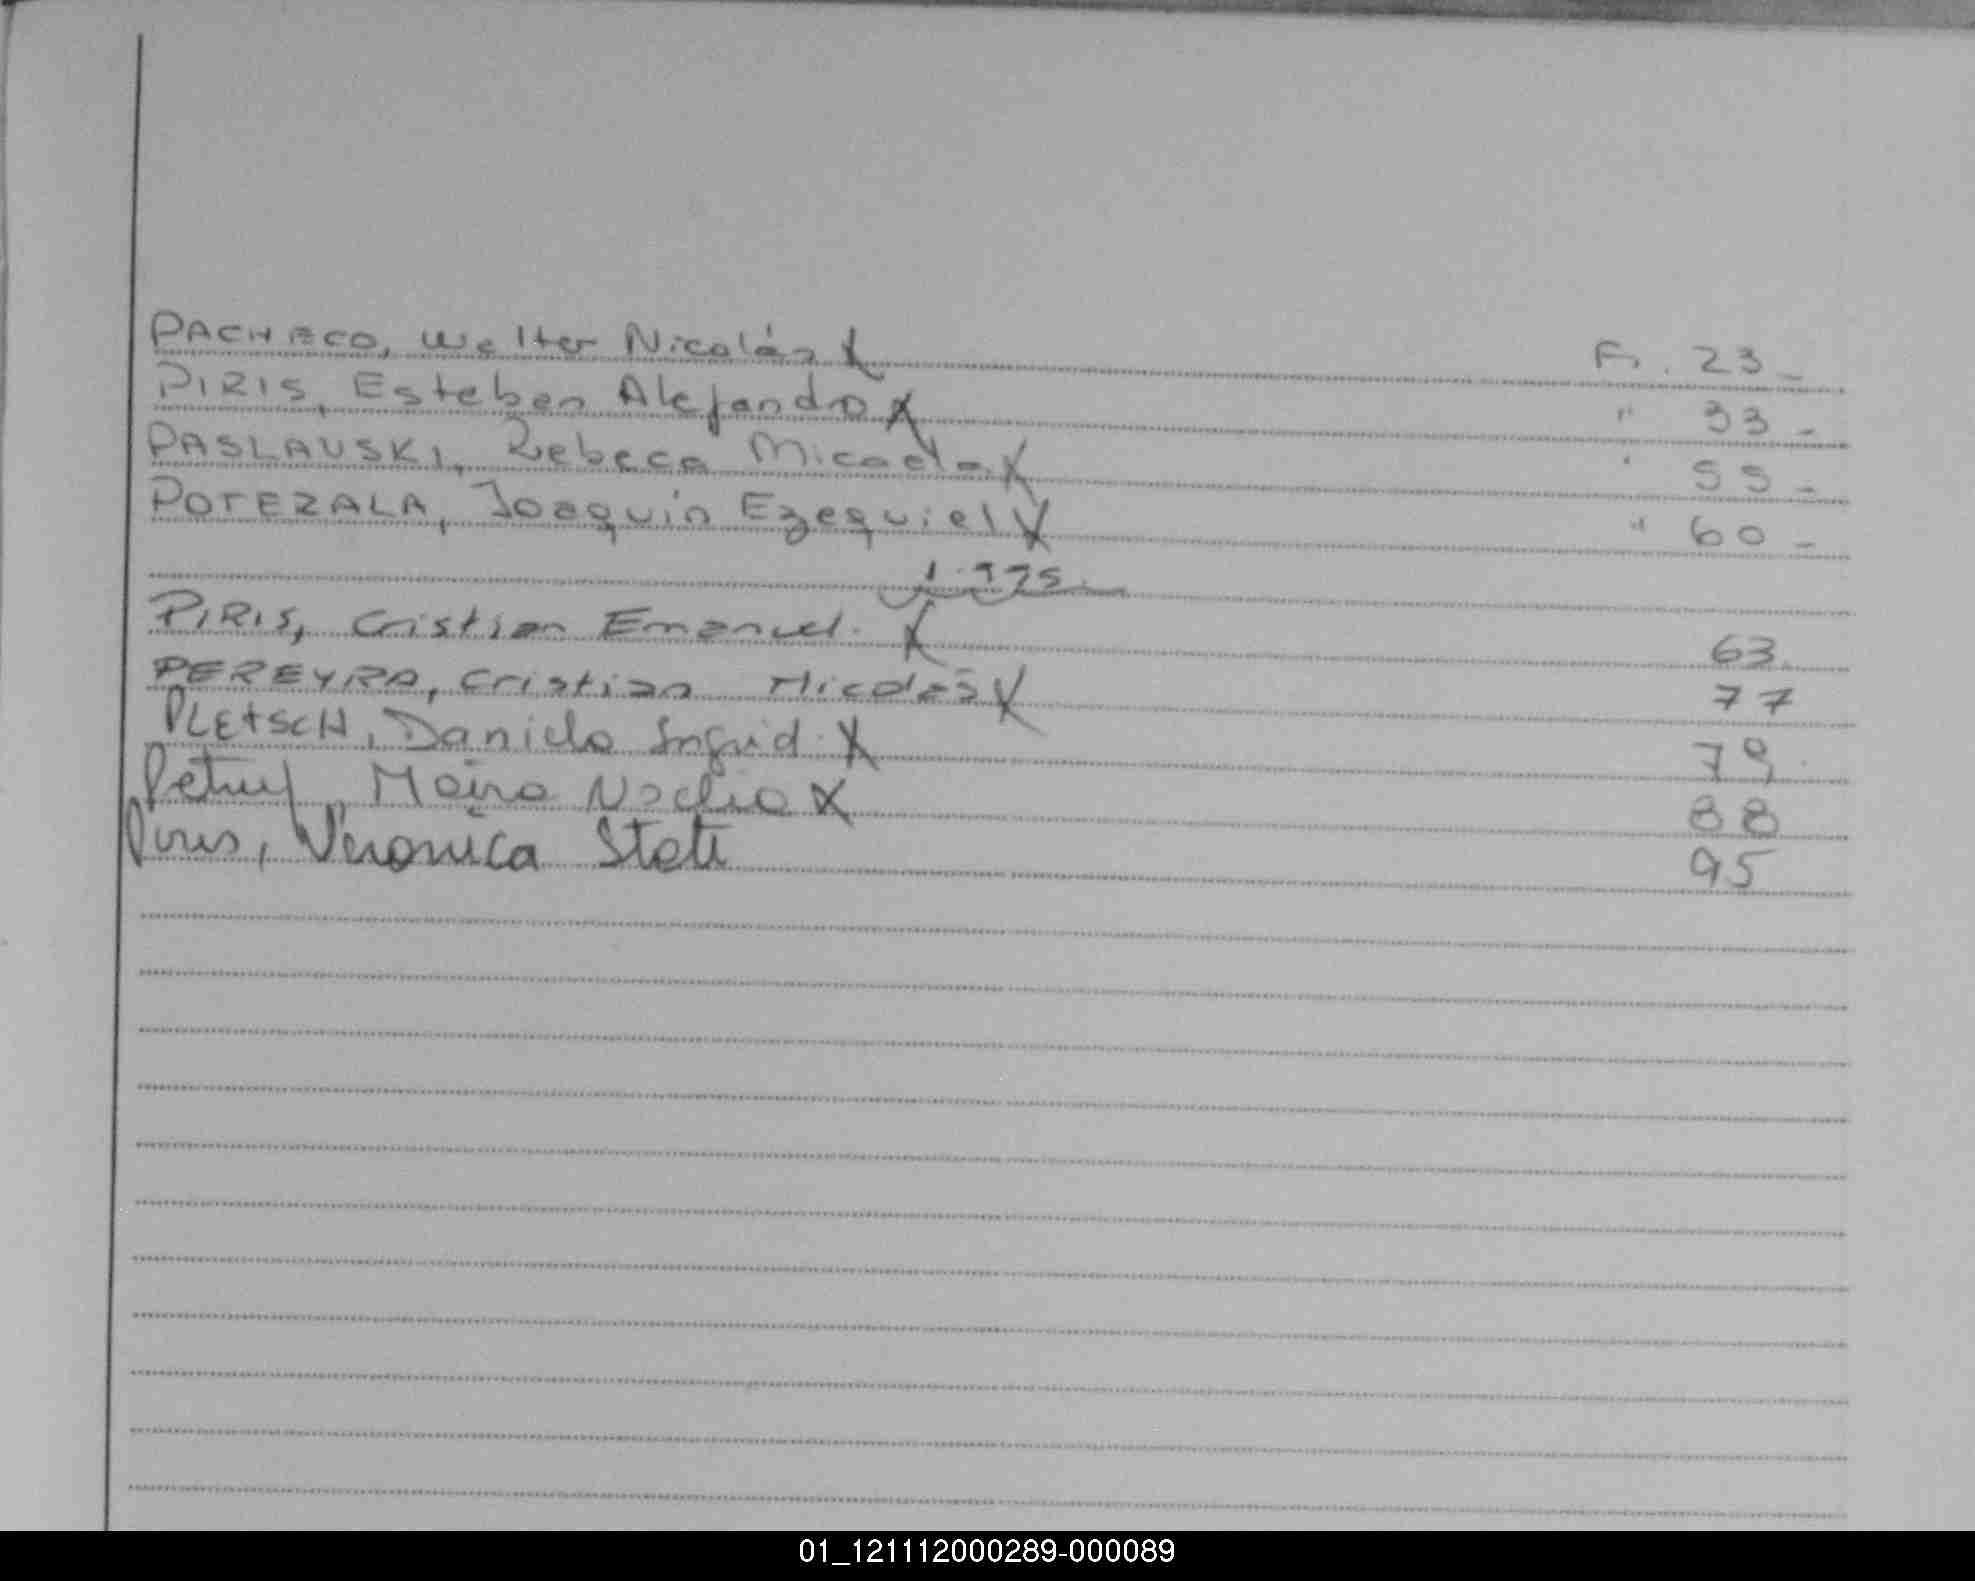 PACHECO, Walter Nicolás X F. 23-
PIRIS, Esteban Alejandro X " 33-
PASLAVSKI, Rebeca Micaela X " 55-
POTEZALA, Joaquin Ezequiel X " 60-
1.995
PIRIS, Cristian Emanuel. X 63.
PEREYRA, Cristian Nicolás X 77
PLETSCH, Daniela Ingrid. X 79
Moira X 88
Piris, Veronica 95
01_121112000289-000089